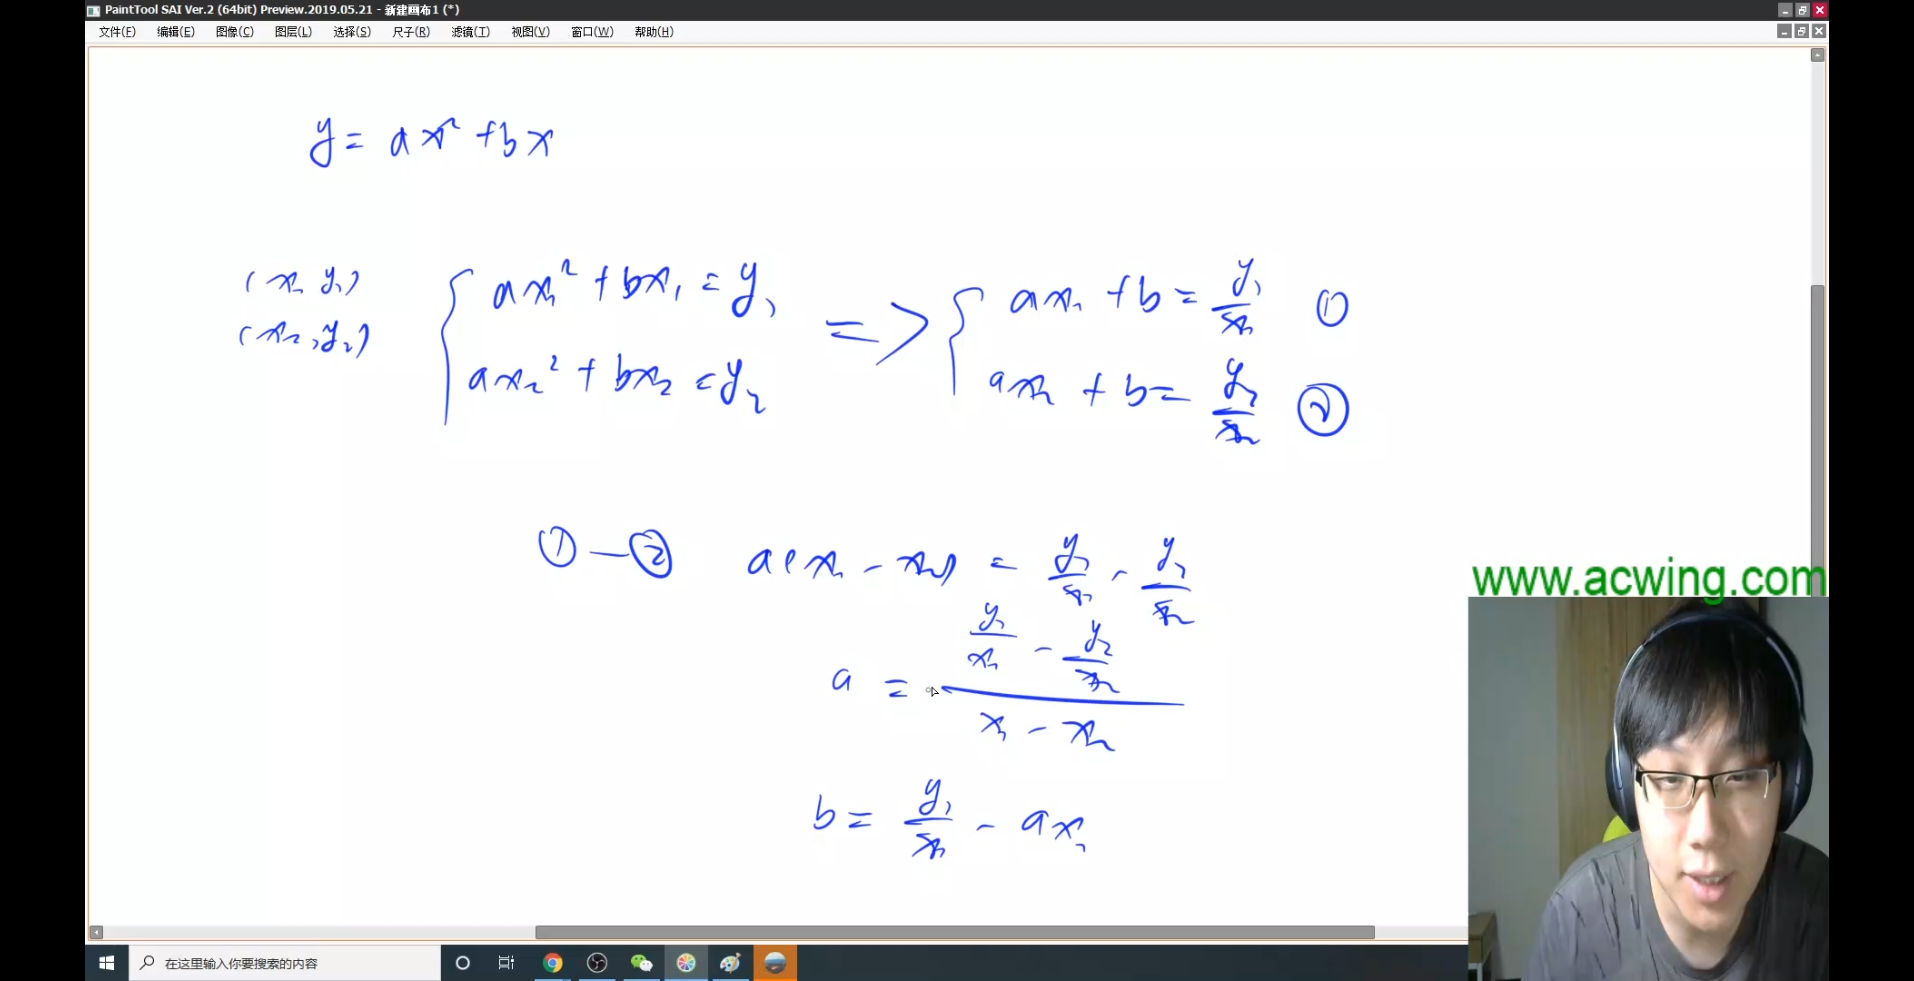 PaintTool SAI Ver.2 (64bit) Preview.2019.05.21 - 新建画布1 (*)
文件(F) 编辑(E) 图像(C) 图层(L) 选择(S) 尺子(R) 滤镜(T) 视图(V) 窗口(W) 帮助(H)
y = ax² + bx
(x₁ y₁)
(x₂, y₂)
ax₁² + bx₁ = y₁
ax₂² + bx₂ = y₂
=>
ax₁ + b = y₁/x₁ ①
ax₂ + b = y₂/x₂ ②
① — ② a(x₁ - x₂) = y₁/x₁ - y₂/x₂
a = (y₁/x₁ - y₂/x₂)/(x₁ - x₂)
b = y₁/x₁ - ax₁
www.acwing.com
在这里输入你要搜索的内容